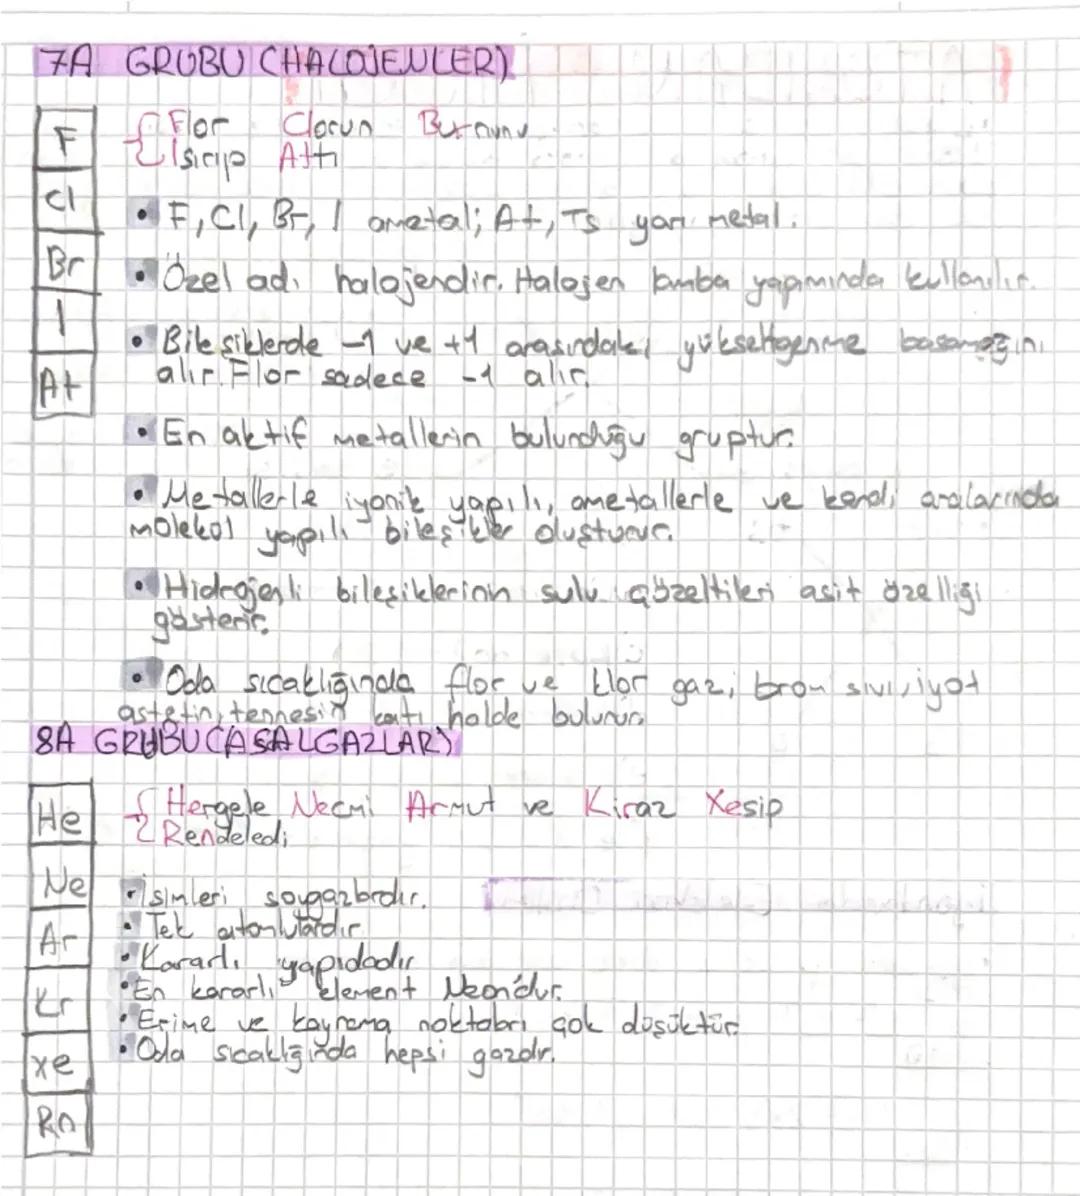 7A GRUBU (HALOJENLER)
F
Cl
Br
I
At
Flor Clorun Burnunu
Isırıp Attı
• F, Cl, Br, I ametal; At, Ts yarı metal.
• Özel adı halojendir. Halojen lamba yapımında kullanılır.
• Bileşiklerde -1 ve +7 arasındaki yükseltgenme basamağını
alır. Flor sadece -1 alır.
• En aktif metallerin bulunduğu gruptur.
• Metallerle iyonik yapılı, ametallerle ve kendi aralarında
molekol yapılı bileşikler oluşturur.
• Hidrojenli bileşiklerinin sulu çözeltileri asit özelliği
gösterir.
• Oda sıcaklığında flor ve klor gaz, brom sıvı, iyot
astetin, tennesin katı halde bulunur.
8A GRUBU (ASALGAZLAR)
He
Ne
Ar
Kr
Xe
Rn
Hergele Necmi Armut ve Kiraz Xesip
Rendeledi
• İsimleri soygazlardır.
• Tek atomlulardır
• Kararlı yapıdadır
• En kararlı element Neon'dur.
• Erime ve kaynama noktaları çok düşüktür.
• Oda sıcaklığında hepsi gazdır.